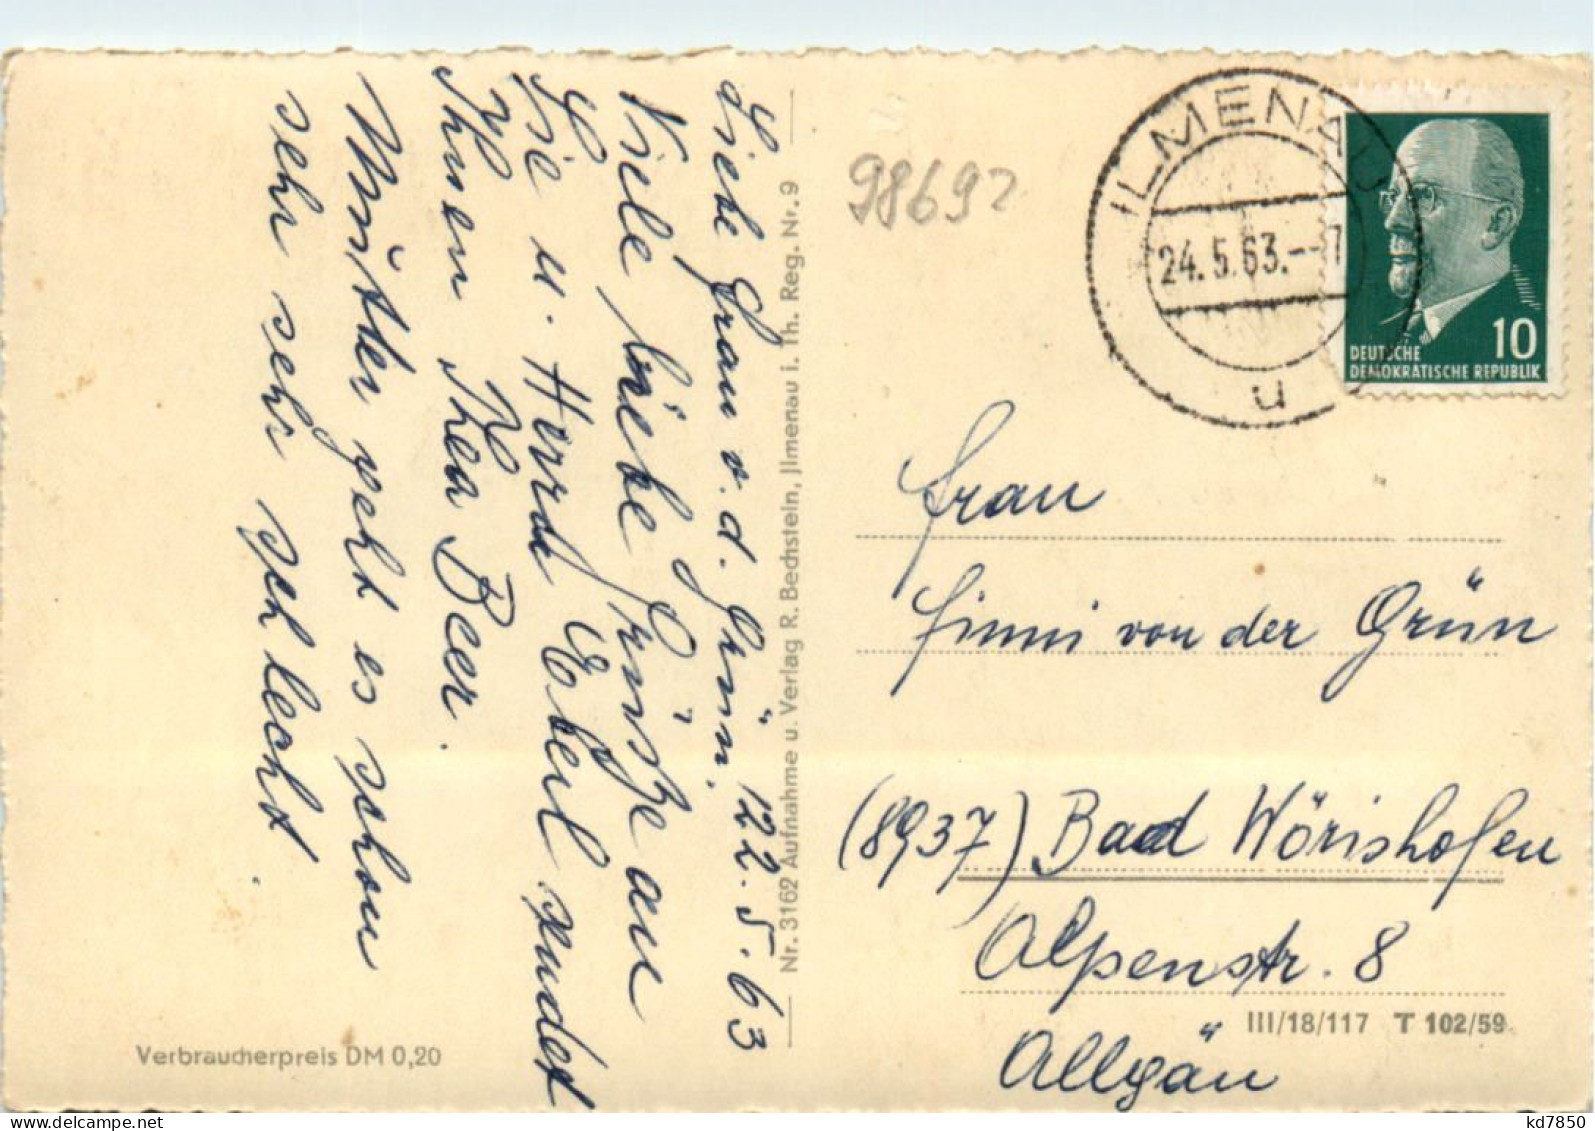 Liebe Frau v. d. Grün. 22.5.63
Viele liebe Grüße an
Sie u. Herrn Eberl sendet
Ihnen Thea Beer.
Mutter geht es schon
sehr sehr schlecht.
Nr. 3162 Aufnahme u. Verlag R. Bechstein, Jlmenau i. Th. Reg. Nr. 9
98692
ILMENAU
24.5.63.--
u
10
DEUTSCHE
DEMOKRATISCHE REPUBLIK
Frau
Finni von der Grün
(8937) Bad Wörishofen
Alpenstr. 8
III/18/117 T 102/59
Allgäu
Verbraucherpreis DM 0,20
kd7850